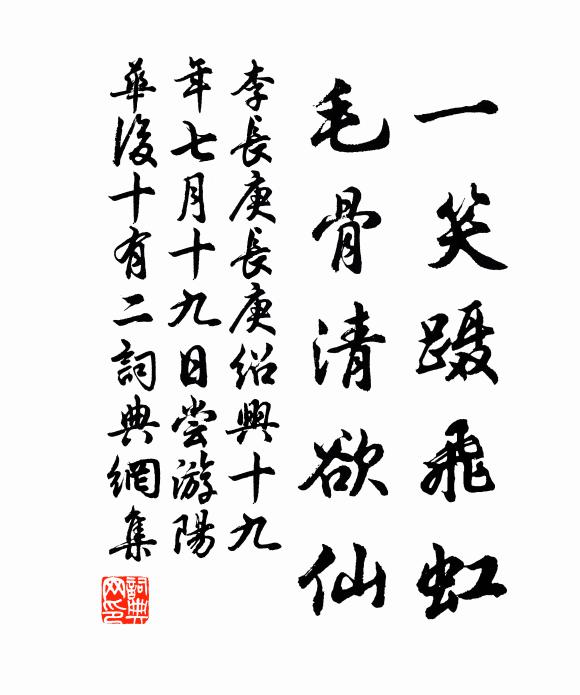 一笑蹑飛虹
毛骨清欲仙
李長庚長庚紹興十九
年七月十九日尝游陽
華後十有二詞典網集
詞典
网印